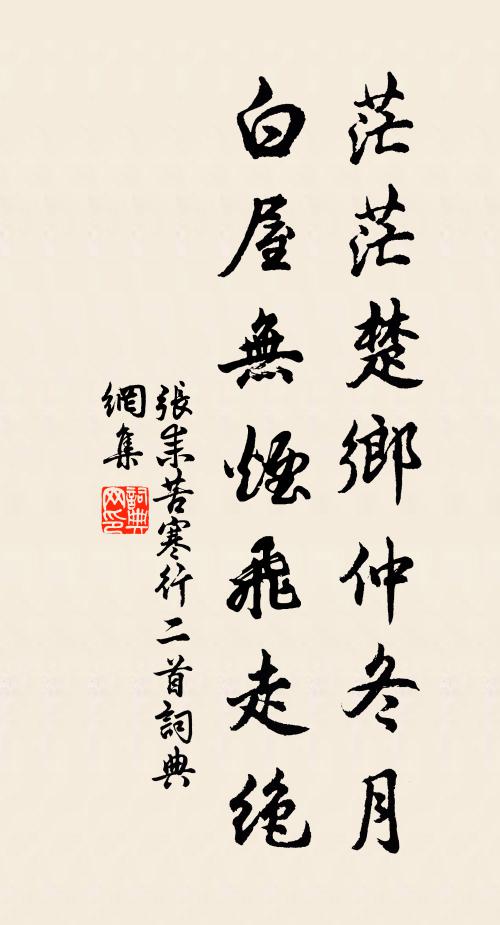 茫茫楚鄉仲冬月
白屋無煙飛走絶
張耒苦寒行二首詞典
網集
詞典
网印